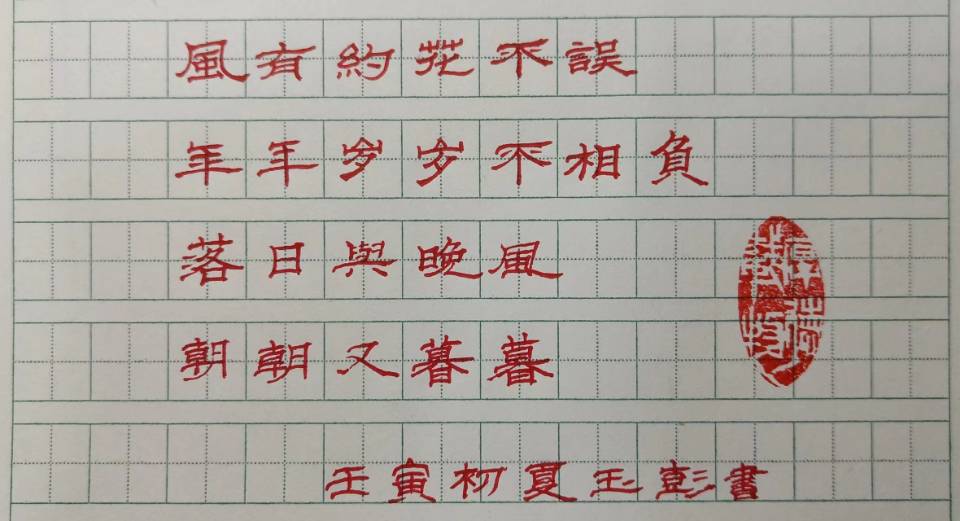 風有約花不誤
年年岁岁不相負
落日與晚風
朝朝又暮暮
厚德載物
壬寅初夏玉彭書